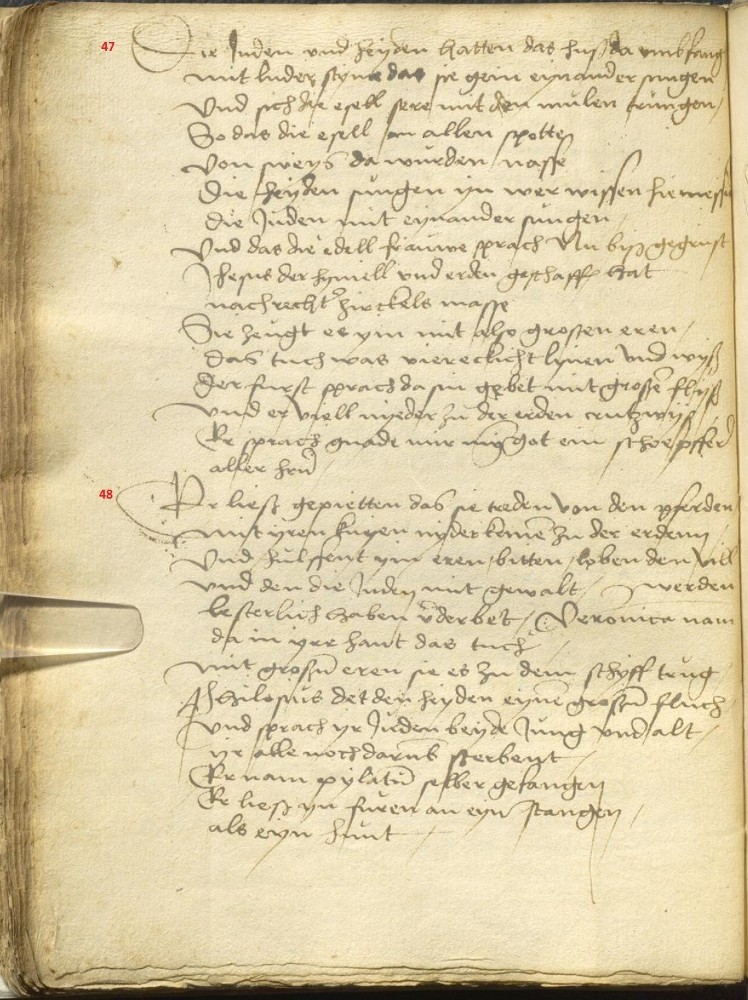 47
Die Juden vnd heyden hatten das huß da vmbfang
mit luder styme das sie gein eynander sungen
Vnd sich die esell sere mit den mulen trungen
So das die esell an allen spotten
von sweys da wurden nasse
Die heyden sungen yn wer wissen hie messe
die Juden mit eynander sungen
Vnd das die edell frauwe sprach Nu biß gegrust
Jhesus der hymell vnd erden geschaff hat
nach recht zirckels masse
Sie zeugt es ym mit also grossen eren
das tuch was viereckicht lynen vnd wyß
Der furst sprach da sin gebet mit grossem flyß
vnd er viell nyeder zu der erden crutzwyß
Er sprach gnade mir myn got ein schoepffer
aller hern
48
Er ließ gepietten das sie treden von den pferden
mit yren knyen nyder kemen zu der erden
Vnd hulffent ym eren bitten loben den will
vnd den die Juden mit gewalt werden
lesterlich haben verderbet / Veronica nam
da in yre hant das tuch
mit grossen eren sie es zu dem schyff trug
Philosius det den heyden eynen grossen fluch
vnd sprach yr Juden beyde Jung vnd alt
yr alle noch darumb sterbent
Er nam pylatum selber gefangen
Er ließ yn furen an eyn stangen
als eyn hunt